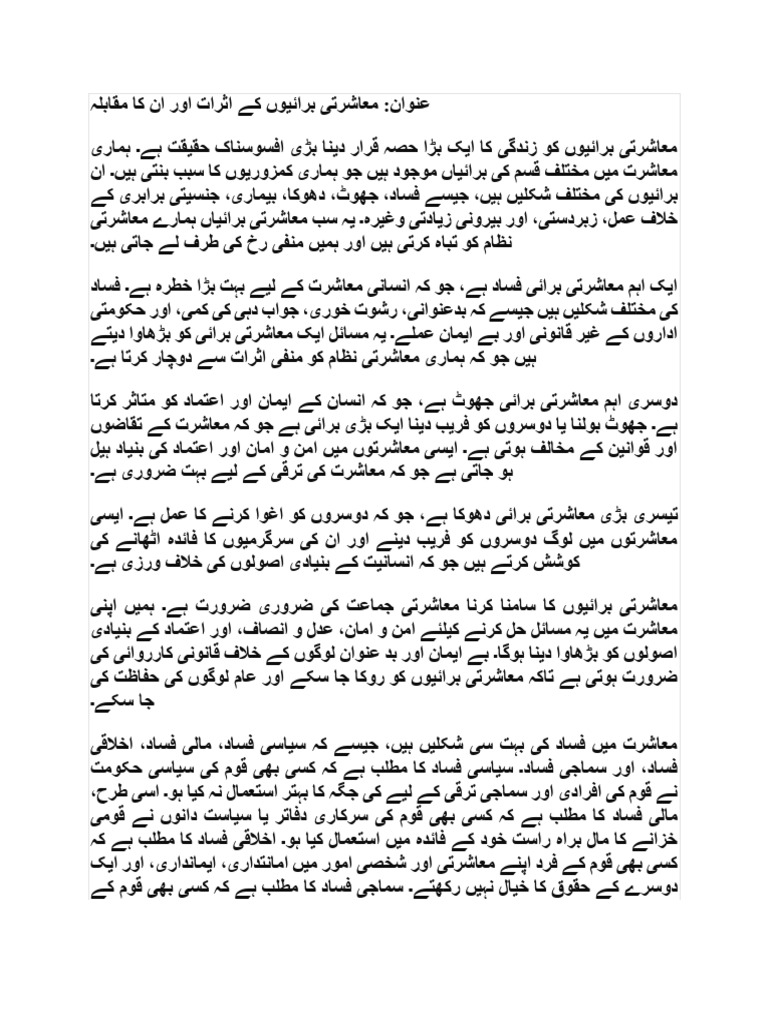 عنوان: معاشرتی برائیوں کے اثرات اور ان کا مقابلہ
معاشرتی برائیوں کو زندگی کا ایک بڑا حصہ قرار دینا بڑی افسوسناک حقیقت ہے۔ ہماری
معاشرت میں مختلف قسم کی برائیاں موجود ہیں جو ہماری کمزوریوں کا سبب بنتی ہیں۔ ان
برائیوں کی مختلف شکلیں ہیں، جیسے فساد، جھوٹ، دھوکا، بیماری، جنسیتی برابری کے
خلاف عمل، زبردستی، اور بیرونی زیادتی وغیرہ۔ یہ سب معاشرتی برائیاں ہمارے معاشرتی
نظام کو تباہ کرتی ہیں اور ہمیں منفی رخ کی طرف لے جاتی ہیں۔
ایک اہم معاشرتی برائی فساد ہے، جو کہ انسانی معاشرت کے لیے بہت بڑا خطرہ ہے۔ فساد
کی مختلف شکلیں ہیں جیسے کہ بدعنوانی، رشوت خوری، جواب دہی کی کمی، اور حکومتی
اداروں کے غیر قانونی اور بے ایمان عملے۔ یہ مسائل ایک معاشرتی برائی کو بڑھاوا دیتے
ہیں جو کہ ہماری معاشرتی نظام کو منفی اثرات سے دوچار کرتا ہے۔
دوسری اہم معاشرتی برائی جھوٹ ہے، جو کہ انسان کے ایمان اور اعتماد کو متاثر کرتا
ہے۔ جھوٹ بولنا یا دوسروں کو فریب دینا ایک بڑی برائی ہے جو کہ معاشرت کے تقاضوں
اور قوانین کے مخالف ہوتی ہے۔ ایسی معاشرتوں میں امن و امان اور اعتماد کی بنیاد ہیل
ہو جاتی ہے جو کہ معاشرت کی ترقی کے لیے بہت ضروری ہے۔
تیسری بڑی معاشرتی برائی دھوکا ہے، جو کہ دوسروں کو اغوا کرنے کا عمل ہے۔ ایسی
معاشرتوں میں لوگ دوسروں کو فریب دینے اور ان کی سرگرمیوں کا فائدہ اٹھانے کی
کوشش کرتے ہیں جو کہ انسانیت کے بنیادی اصولوں کی خلاف ورزی ہے۔
معاشرتی برائیوں کا سامنا کرنا معاشرتی جماعت کی ضروری ضرورت ہے۔ ہمیں اپنی
معاشرت میں یہ مسائل حل کرنے کیلئے امن و امان، عدل و انصاف، اور اعتماد کے بنیادی
اصولوں کو بڑھاوا دینا ہوگا۔ بے ایمان اور بد عنوان لوگوں کے خلاف قانونی کارروائی کی
ضرورت ہوتی ہے تاکہ معاشرتی برائیوں کو روکا جا سکے اور عام لوگوں کی حفاظت کی
جا سکے۔
معاشرت میں فساد کی بہت سی شکلیں ہیں، جیسے کہ سیاسی فساد، مالی فساد، اخلاقی
فساد، اور سماجی فساد۔ سیاسی فساد کا مطلب ہے کہ کسی بھی قوم کی سیاسی حکومت
نے قوم کی افرادی اور سماجی ترقی کے لیے کی جگہ کا بہتر استعمال نہ کیا ہو۔ اسی طرح،
مالی فساد کا مطلب ہے کہ کسی بھی قوم کی سرکاری دفاتر یا سیاست دانوں نے قومی
خزانے کا مال براہ راست خود کے فائدہ میں استعمال کیا ہو۔ اخلاقی فساد کا مطلب ہے کہ
کسی بھی قوم کے فرد اپنے معاشرتی اور شخصی امور میں امانتداری، ایمانداری، اور ایک
دوسرے کے حقوق کا خیال نہیں رکھتے۔ سماجی فساد کا مطلب ہے کہ کسی بھی قوم کے